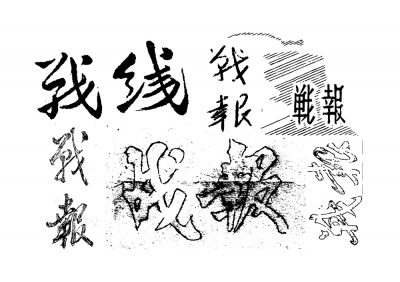 战线
战報
戦報
战報
战報
戰報